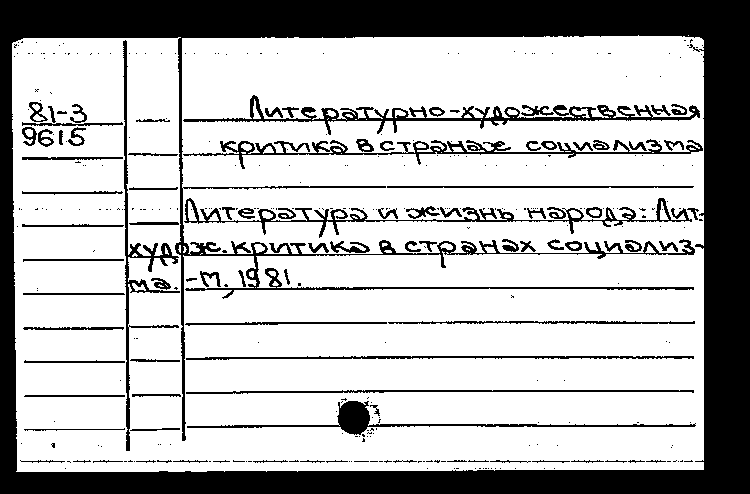 81-3
9615
Литературно-художественная
критика в странах социализма
Литература и жизнь народа: Лит.-
худож. критика в странах социализ-
ма. - М., 1981.